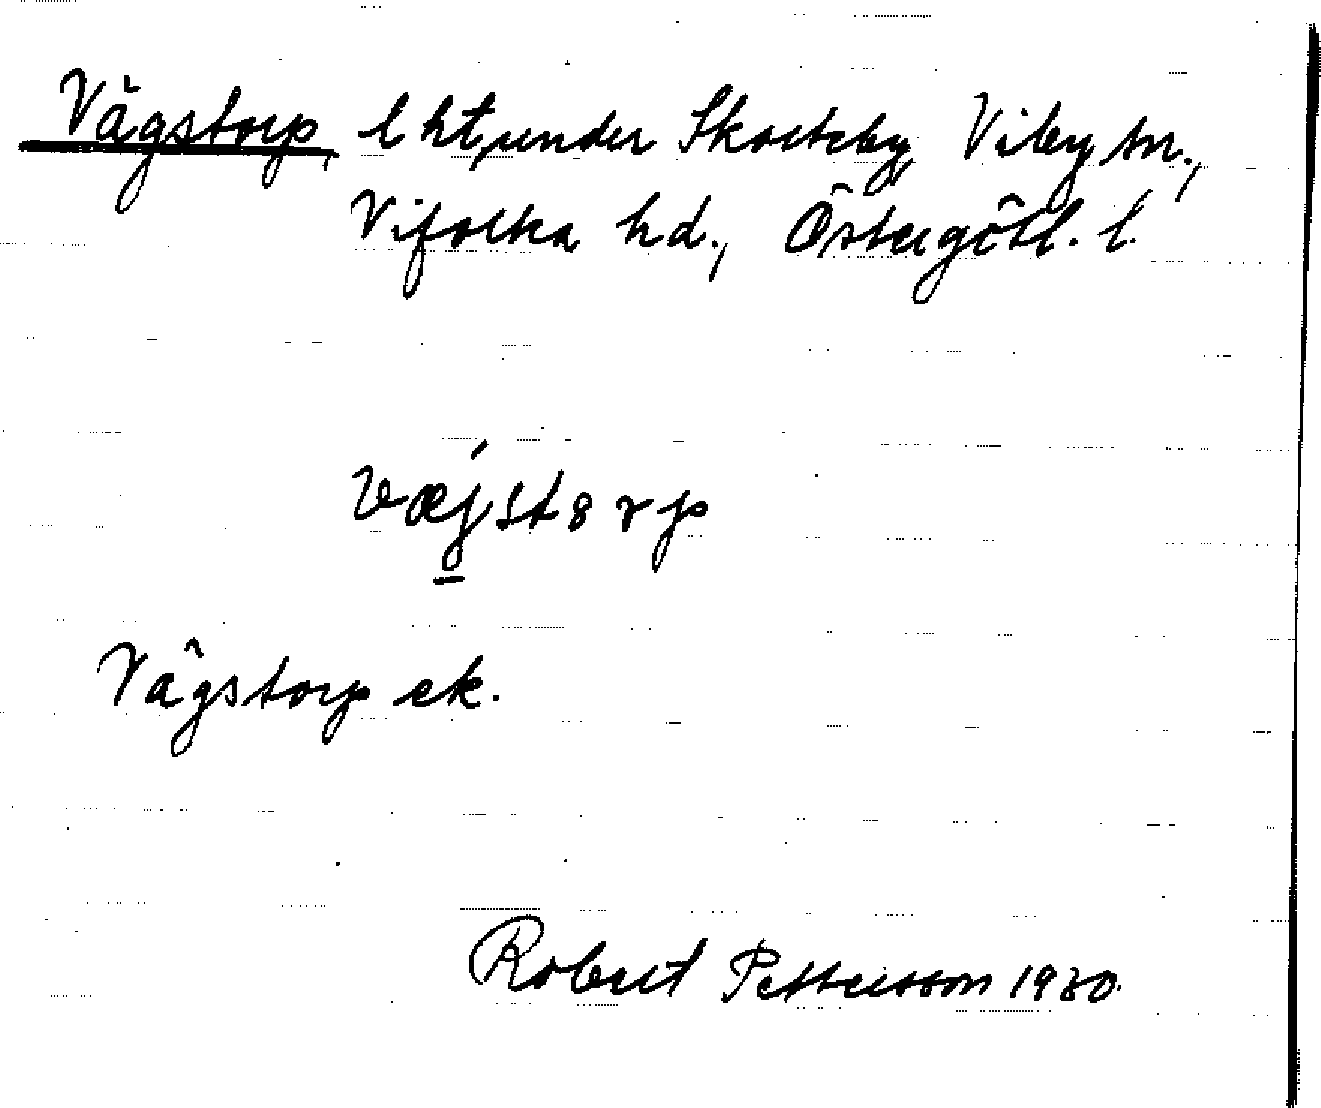 Vägstorp, lht, under Skorteby, Viby sn.,
Vifolka hd., Östergötl. l.
væ̱j́st8rp
Vägstorp ek.
Robert Pettersson 1930.